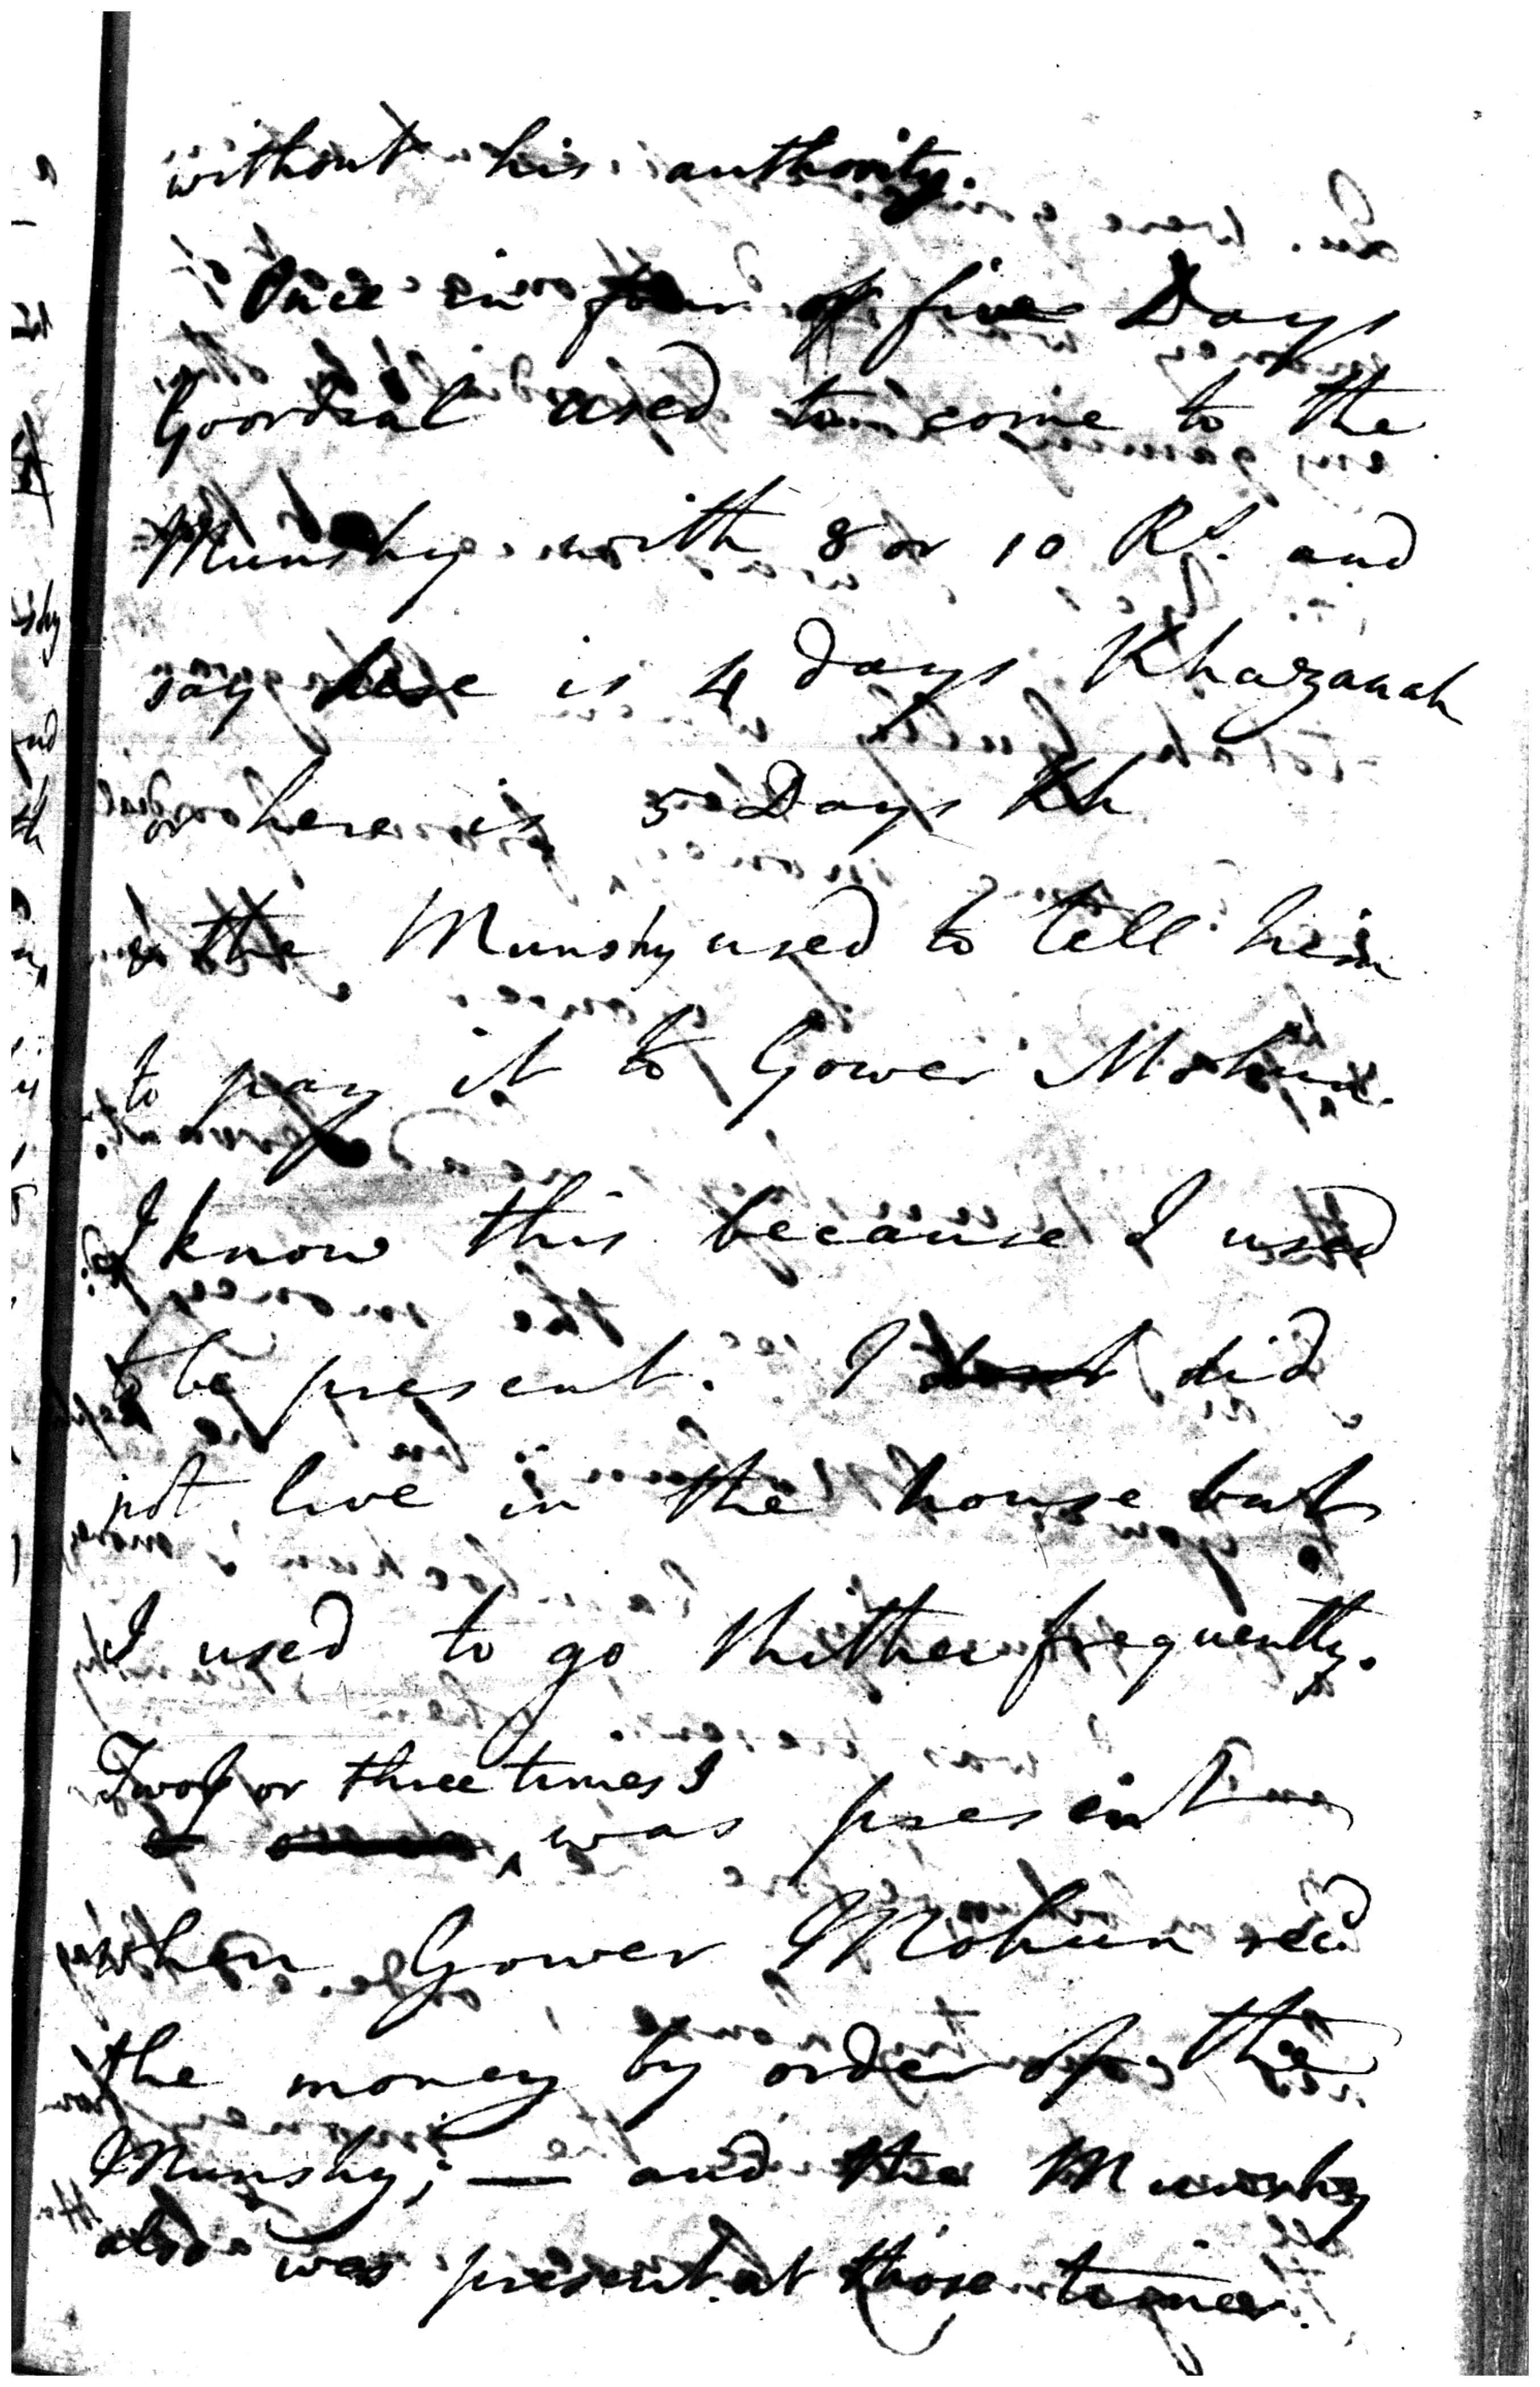 without his authority.
Once in four or five Days
Goordial used to come to the
Munshy with 8 or 10 Rs. and
say here is 4 days Khazanah
or here is 5 Days Kh
& the Munshy used to tell him
to pay it to Gower Mohun.
I know this because I used
to be present. I did
not live in the house but
I used to go thither frequently.
Two or three times I
was present
when Gower Mohun recd
the money by order of the
Munshy; — and the Munshy
also was present at those times.